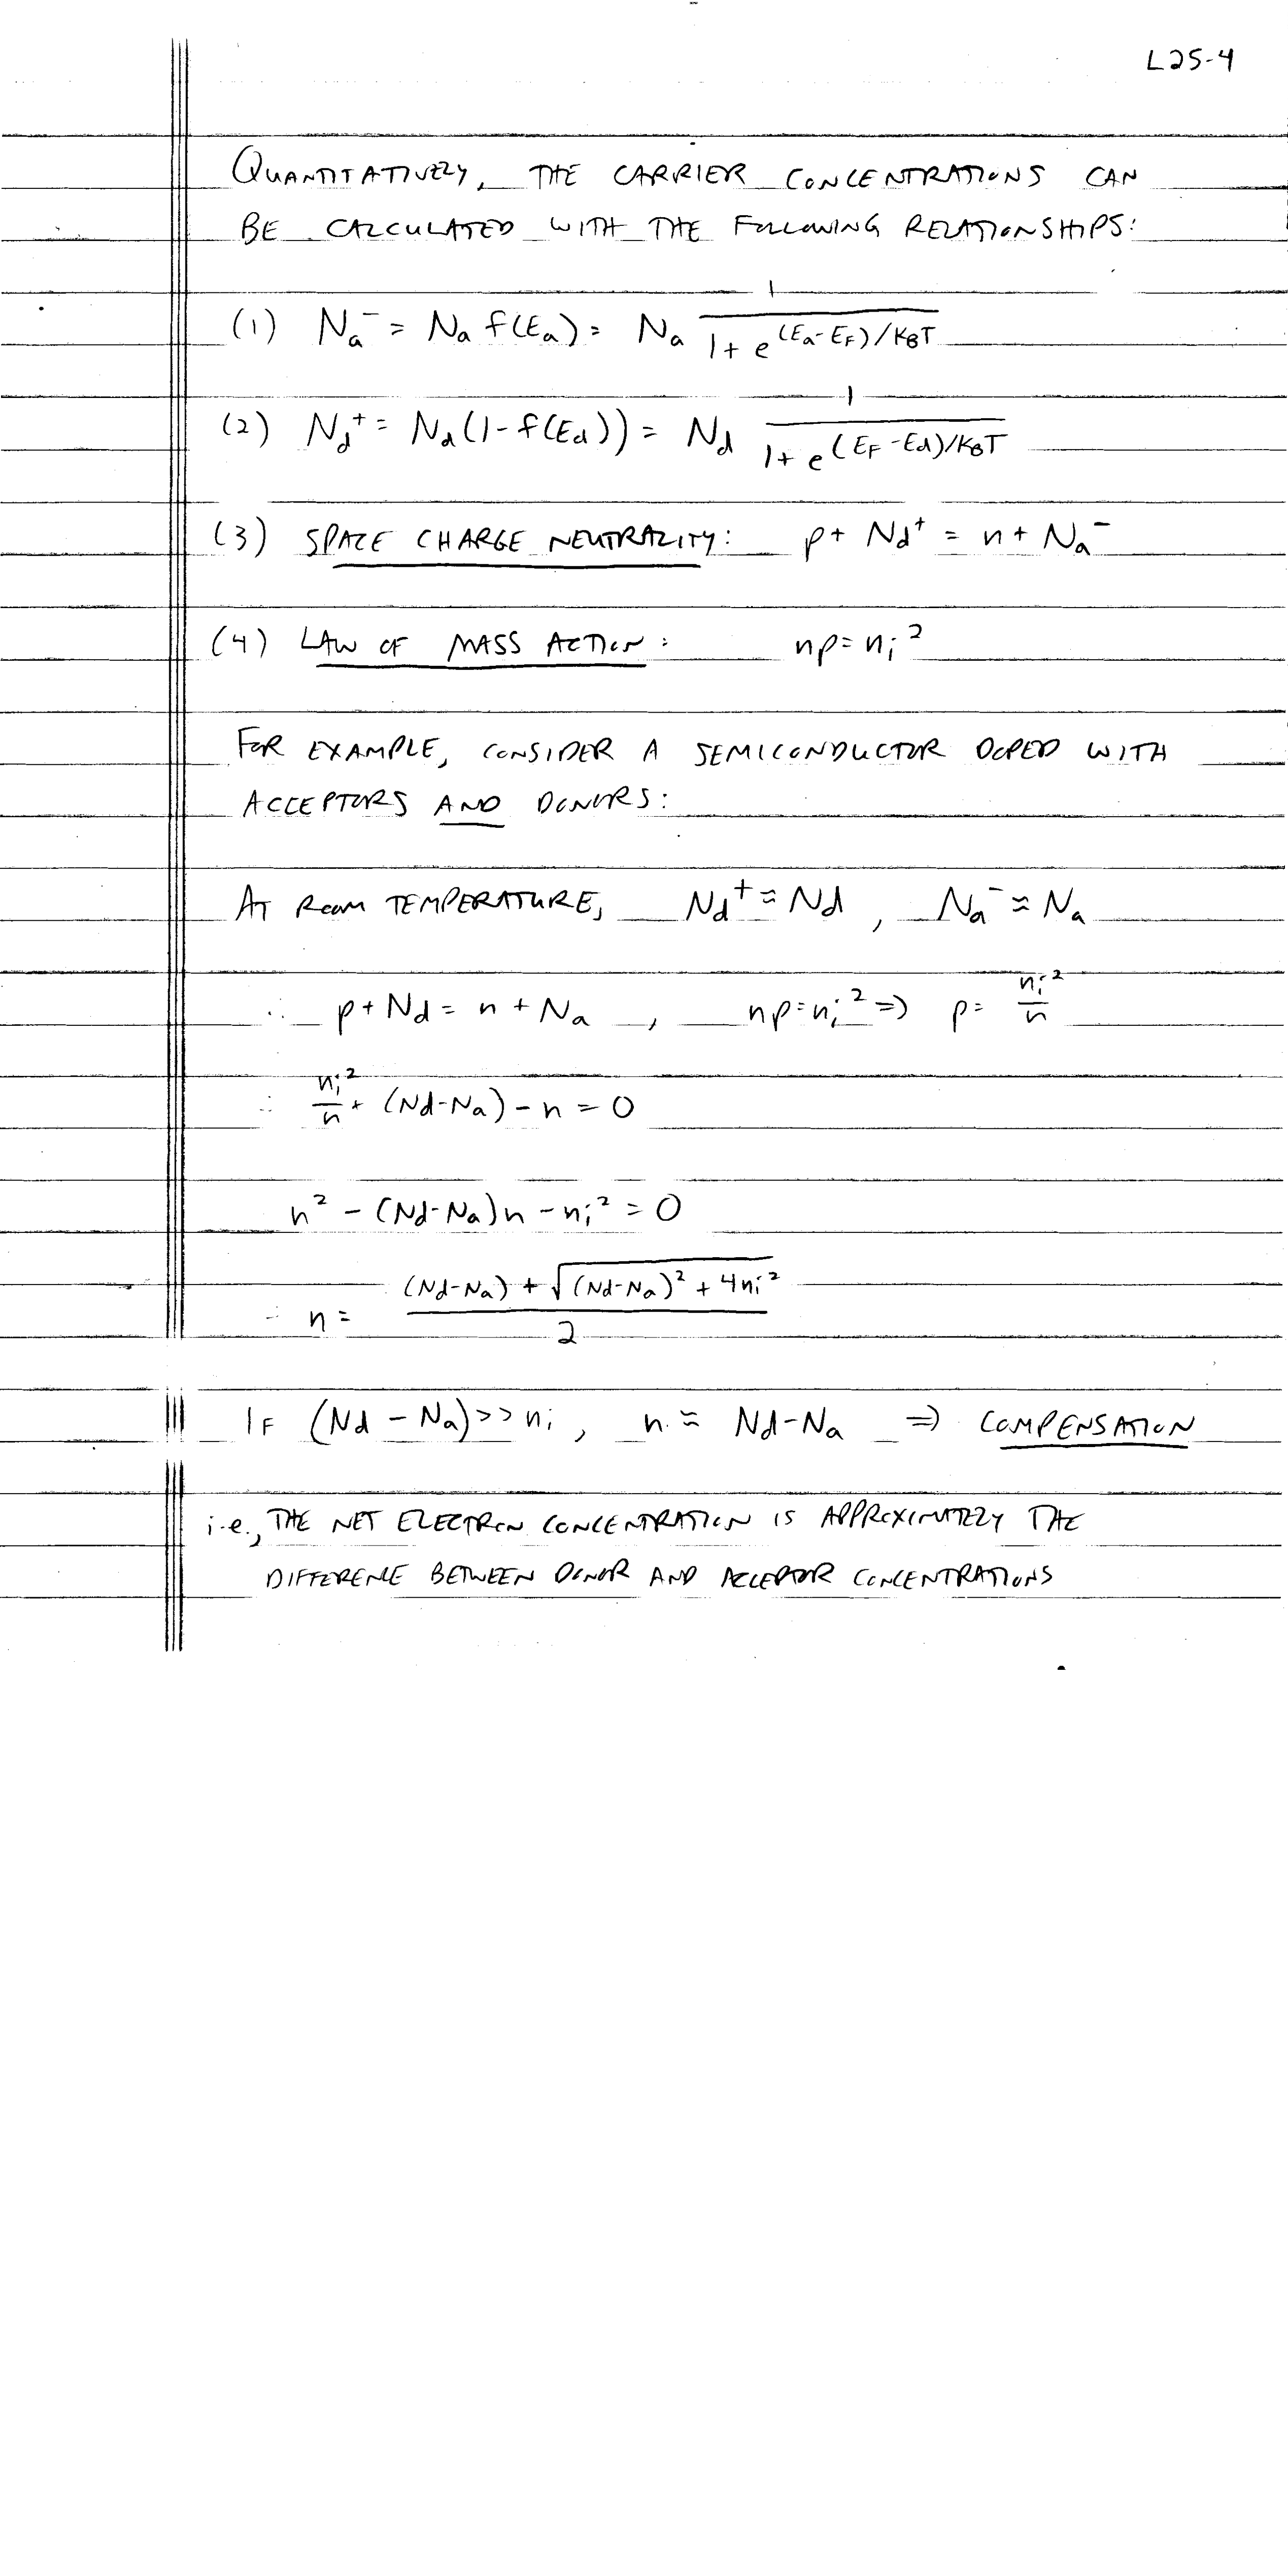 L25-4
QUANTITATIVELY, THE CARRIER CONCENTRATIONS CAN
BE CALCULATED WITH THE FOLLOWING RELATIONSHIPS:
(1) Na⁻ = Na f(Ea) = Na 1/(1 + e^((Ea-EF)/KBT))
(2) Nd⁺ = Nd(1-f(Ed)) = Nd 1/(1 + e^((EF-Ed)/KBT))
(3) SPACE CHARGE NEUTRALITY: p + Nd⁺ = n + Na⁻
(4) LAW OF MASS ACTION: np = ni²
FOR EXAMPLE, CONSIDER A SEMICONDUCTOR DOPED WITH
ACCEPTORS AND DONORS:
AT ROOM TEMPERATURE, Nd⁺ ≈ Nd , Na⁻ ≈ Na
∴ p + Nd = n + Na , np = ni² ⇒ p = ni²/n
∴ ni²/n + (Nd-Na) - n = 0
n² - (Nd-Na)n - ni² = 0
∴ n = ((Nd-Na) + √((Nd-Na)² + 4ni²))/2
IF (Nd - Na) >> ni , n ≈ Nd-Na ⇒ COMPENSATION
i.e., THE NET ELECTRON CONCENTRATION IS APPROXIMATELY THE
DIFFERENCE BETWEEN DONOR AND ACCEPTOR CONCENTRATIONS